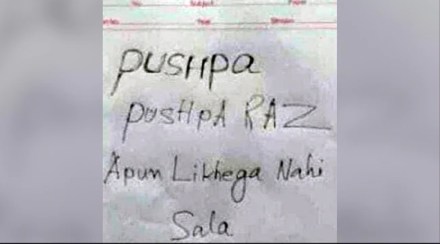 pusHpa
pusHpA RAZ
Apun Likhega Nahi
Sala